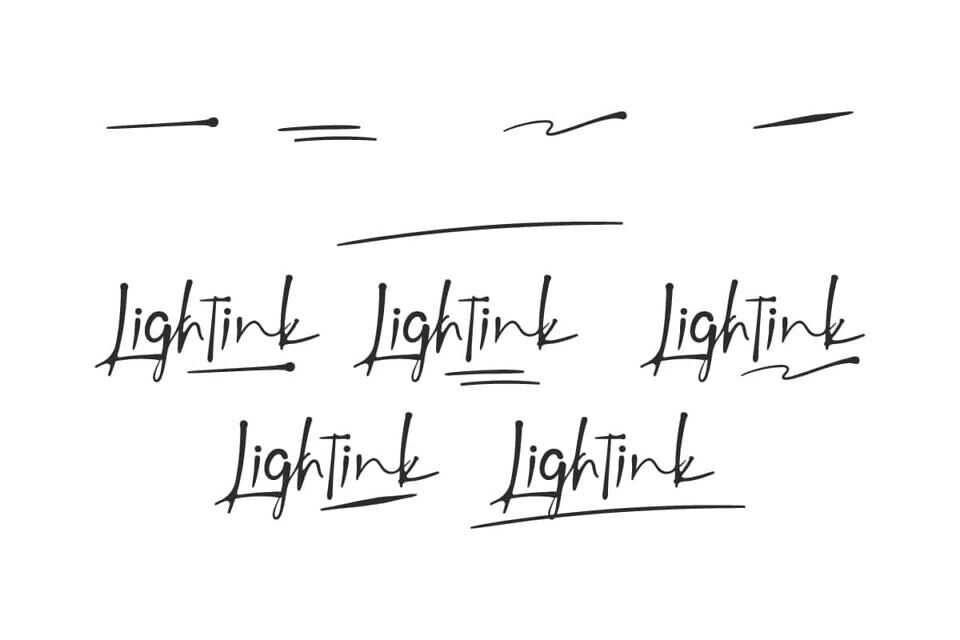 Lightink Lightink Lightink
Lightink Lightink